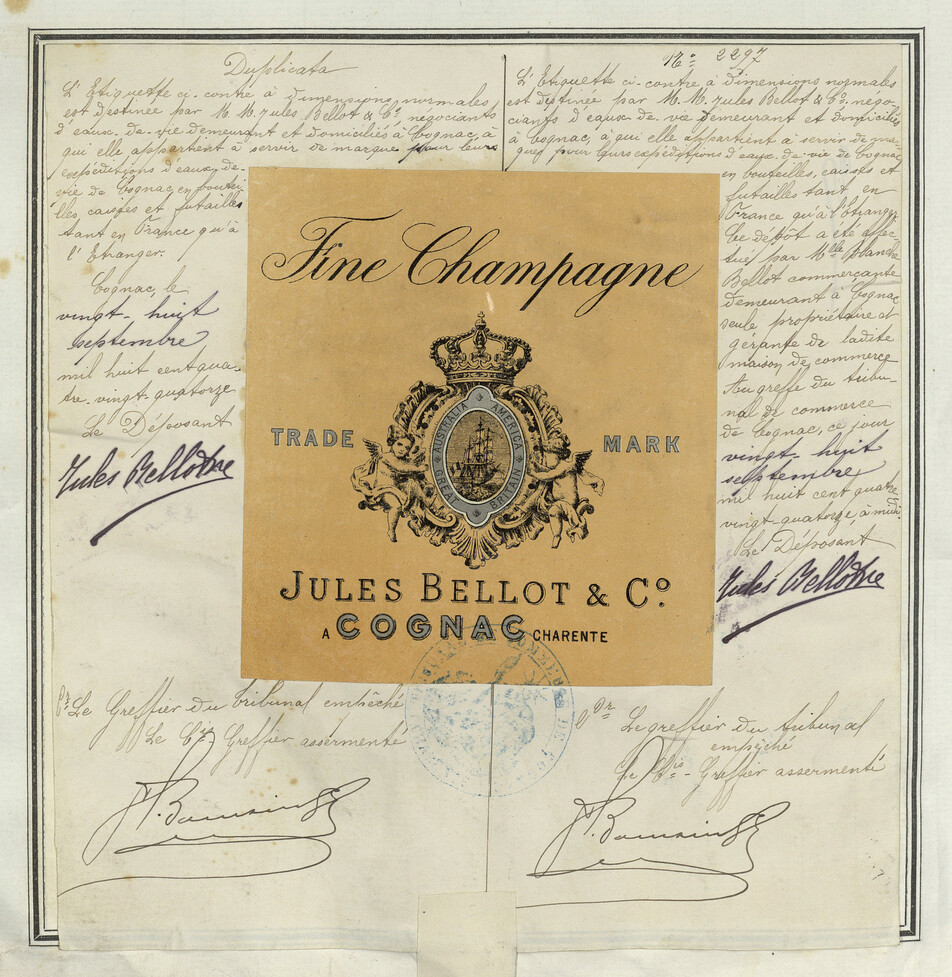 Duplicata
L'Etiquette ci-contre à dimensions normales
est destinée par M.M. Jules Bellot & Cie négociants
d'eaux-de-vie demeurant et domiciliés à Cognac, à
qui elle appartient à servir de marque pour leurs
expéditions d'eaux-de-
vie de Cognac en boutei-
lles, caisses et futailles
tant en France qu'à
l'Etranger.
Cognac, le
vingt-huit
septembre
mil huit cent qua-
tre-vingt-quatorze
Le Déposant
Jules Bellot & Cie
No 2297
L'Etiquette ci-contre à dimensions normales
est destinée par M.M. Jules Bellot & Cie négo-
ciants d'eaux-de-vie demeurant et domiciliés
à Cognac, à qui elle appartient à servir de mar-
que pour leurs expéditions d'eaux-de-vie de Cognac
en bouteilles, caisses et
futailles tant en
France qu'à l'Etranger.
Ce dépôt a été effec-
tué par Mlle Blanche
Bellot commerçante
demeurant à Cognac
seule propriétaire et
gérante de ladite
maison de commerce
Au greffe du tribu-
nal de commerce
de Cognac, ce jour
vingt-huit
septembre
mil huit cent quatre
vingt-quatorze, à midi.
Le Déposant
Jules Bellot & Cie
Fine Champagne
TRADE MARK
AUSTRALIA AMERICA
GREAT BRITAIN
JULES BELLOT & Co.
A COGNAC CHARENTE
Pr Le Greffier du tribunal empêché
Le Cis Greffier assermenté
Pr Le greffier du tribunal
empêché
Le Cis-Greffier assermenté